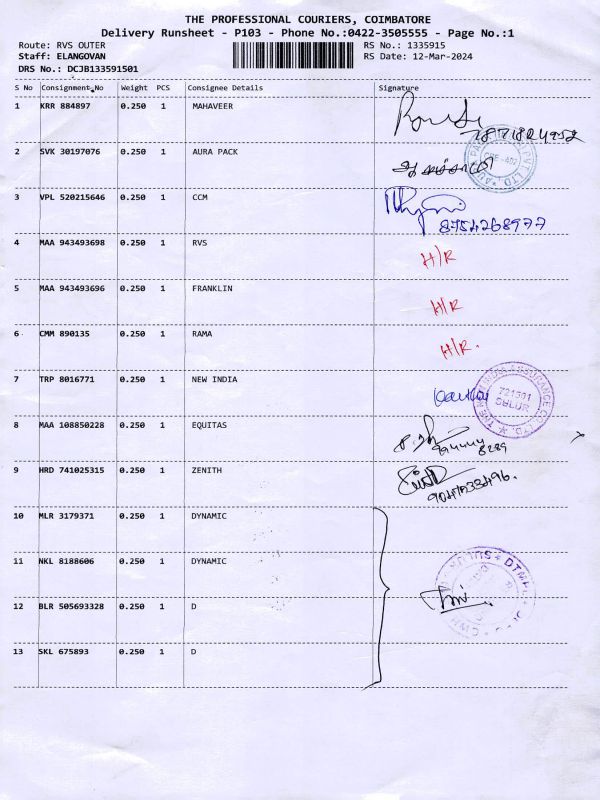 THE PROFESSIONAL COURIERS, COIMBATORE
Delivery Runsheet - P103 - Phone No.:0422-3505555 - Page No.:1
Route: RVS OUTER RS No.: 1335915
Staff: ELANGOVAN RS Date: 12-Mar-2024
DRS No.: DCJB133591501
S No Consignment No Weight PCS Consignee Details Signature
1 KRR 884897 0.250 1 MAHAVEER
2 SVK 30197076 0.250 1 AURA PACK
3 VPL 520215646 0.250 1 CCM
8754268977
4 MAA 943493698 0.250 1 RVS H/R
5 MAA 943493696 0.250 1 FRANKLIN H/R
6 CMM 890135 0.250 1 RAMA H/R.
7 TRP 8016771 0.250 1 NEW INDIA
THE NEW INDIA ASSURANCE CO. LTD.
721301
SULUR
8 MAA 108850228 0.250 1 EQUITAS
9 HRD 741025315 0.250 1 ZENITH
10 MLR 3179371 0.250 1 DYNAMIC
11 NKL 8188606 0.250 1 DYNAMIC
12 BLR 505693328 0.250 1 D
13 SKL 675893 0.250 1 D